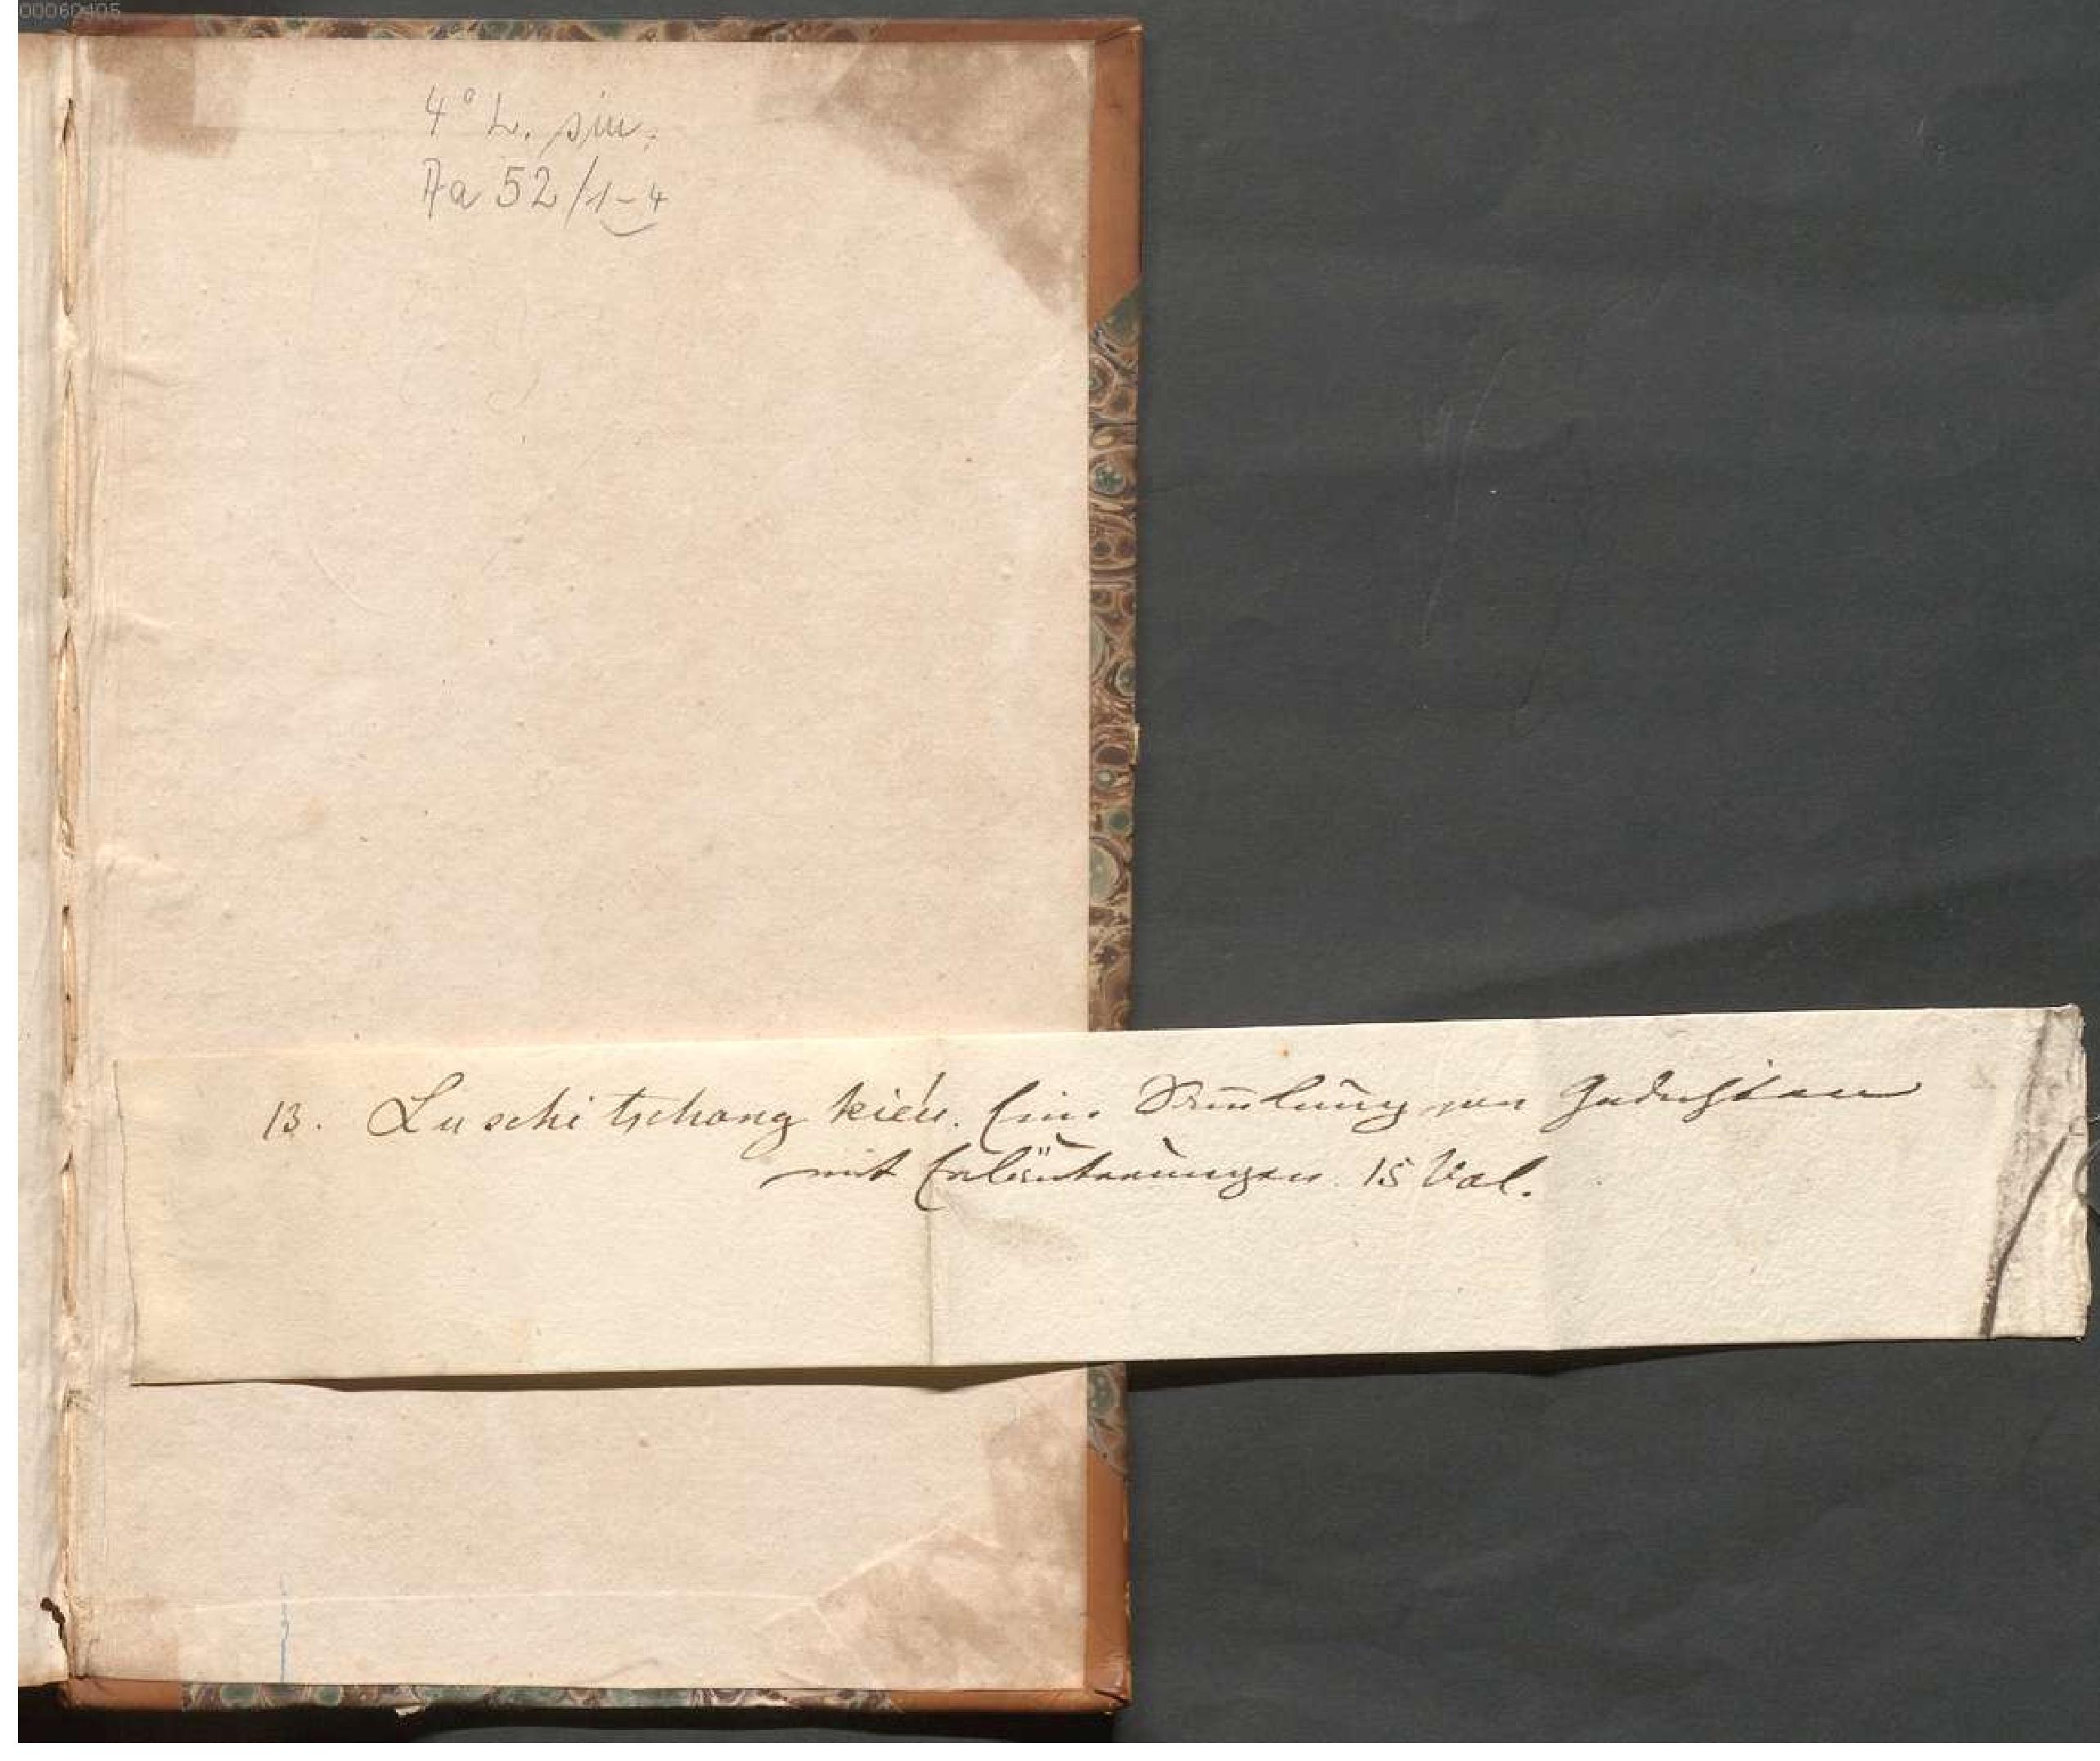 00060405
4° L. sin.
Aa 52/1-4
13. Lu schi tschang kiéu. Eine Sam̅lung von Gedichten
mit Erläuterungen. 15 Vol.